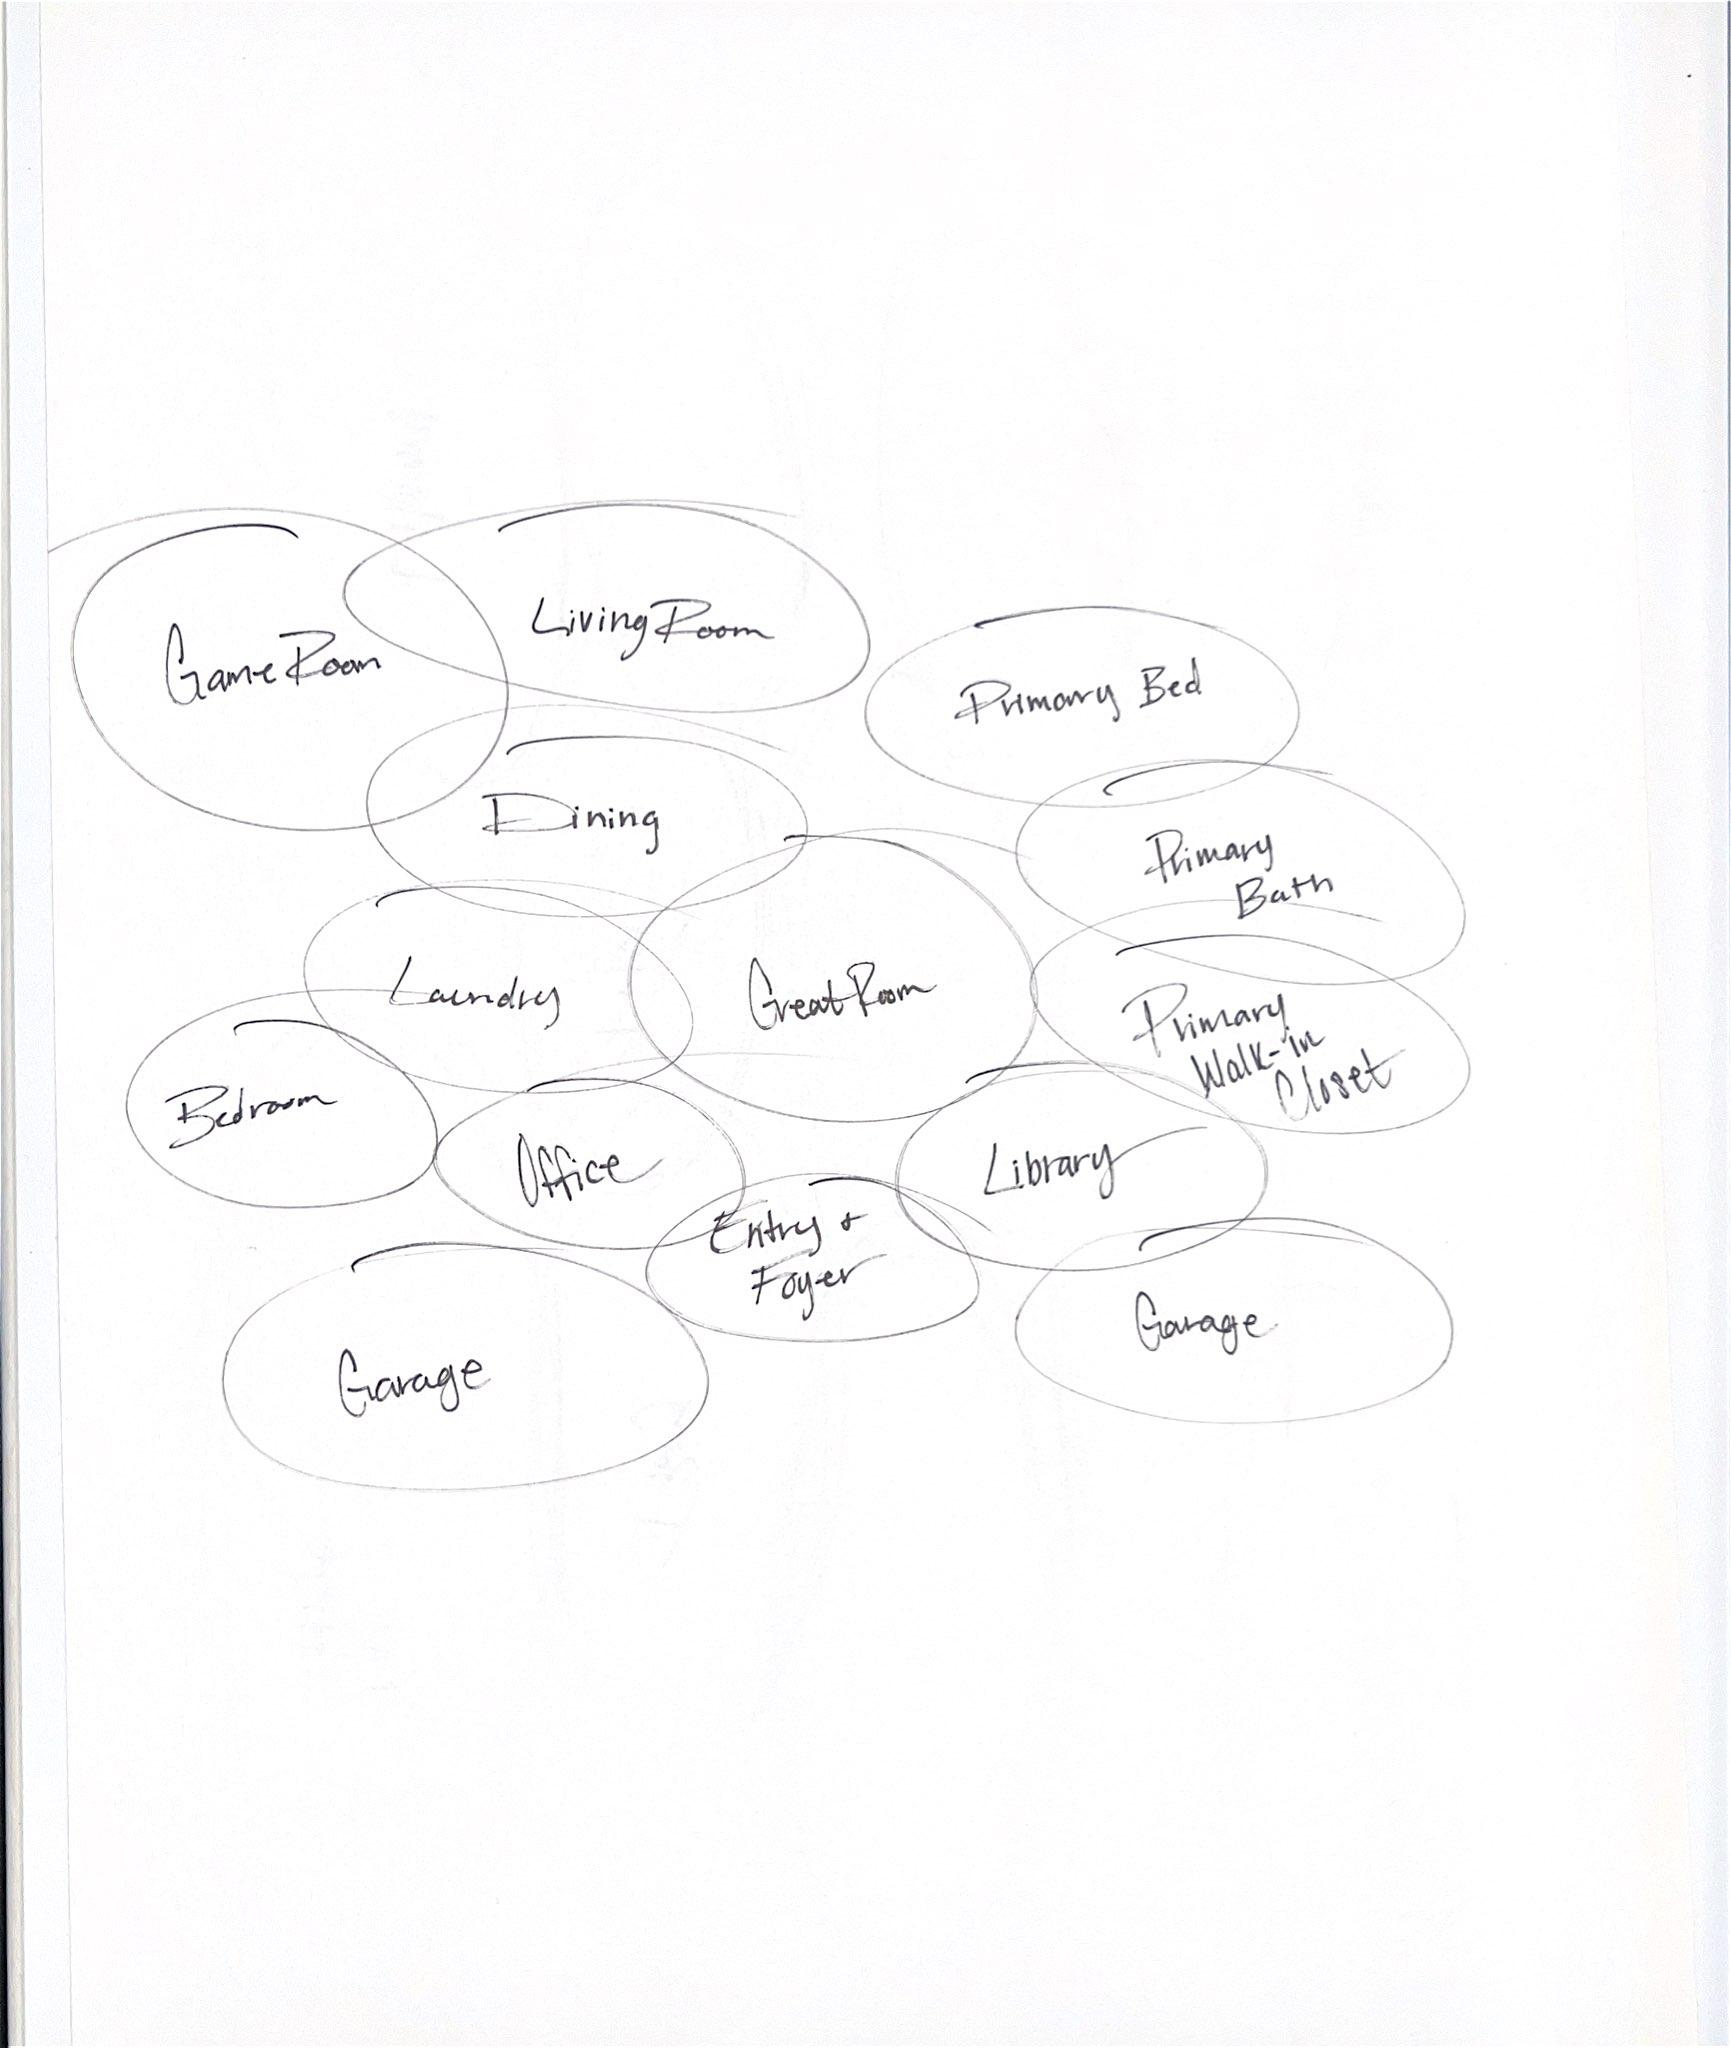 Living Room
Game Room
Primary Bed
Dining
Primary
Bath
Laundry
Great Room
Primary
Walk-in
Closet
Bedroom
Office
Library
Entry +
Foyer
Garage
Garage